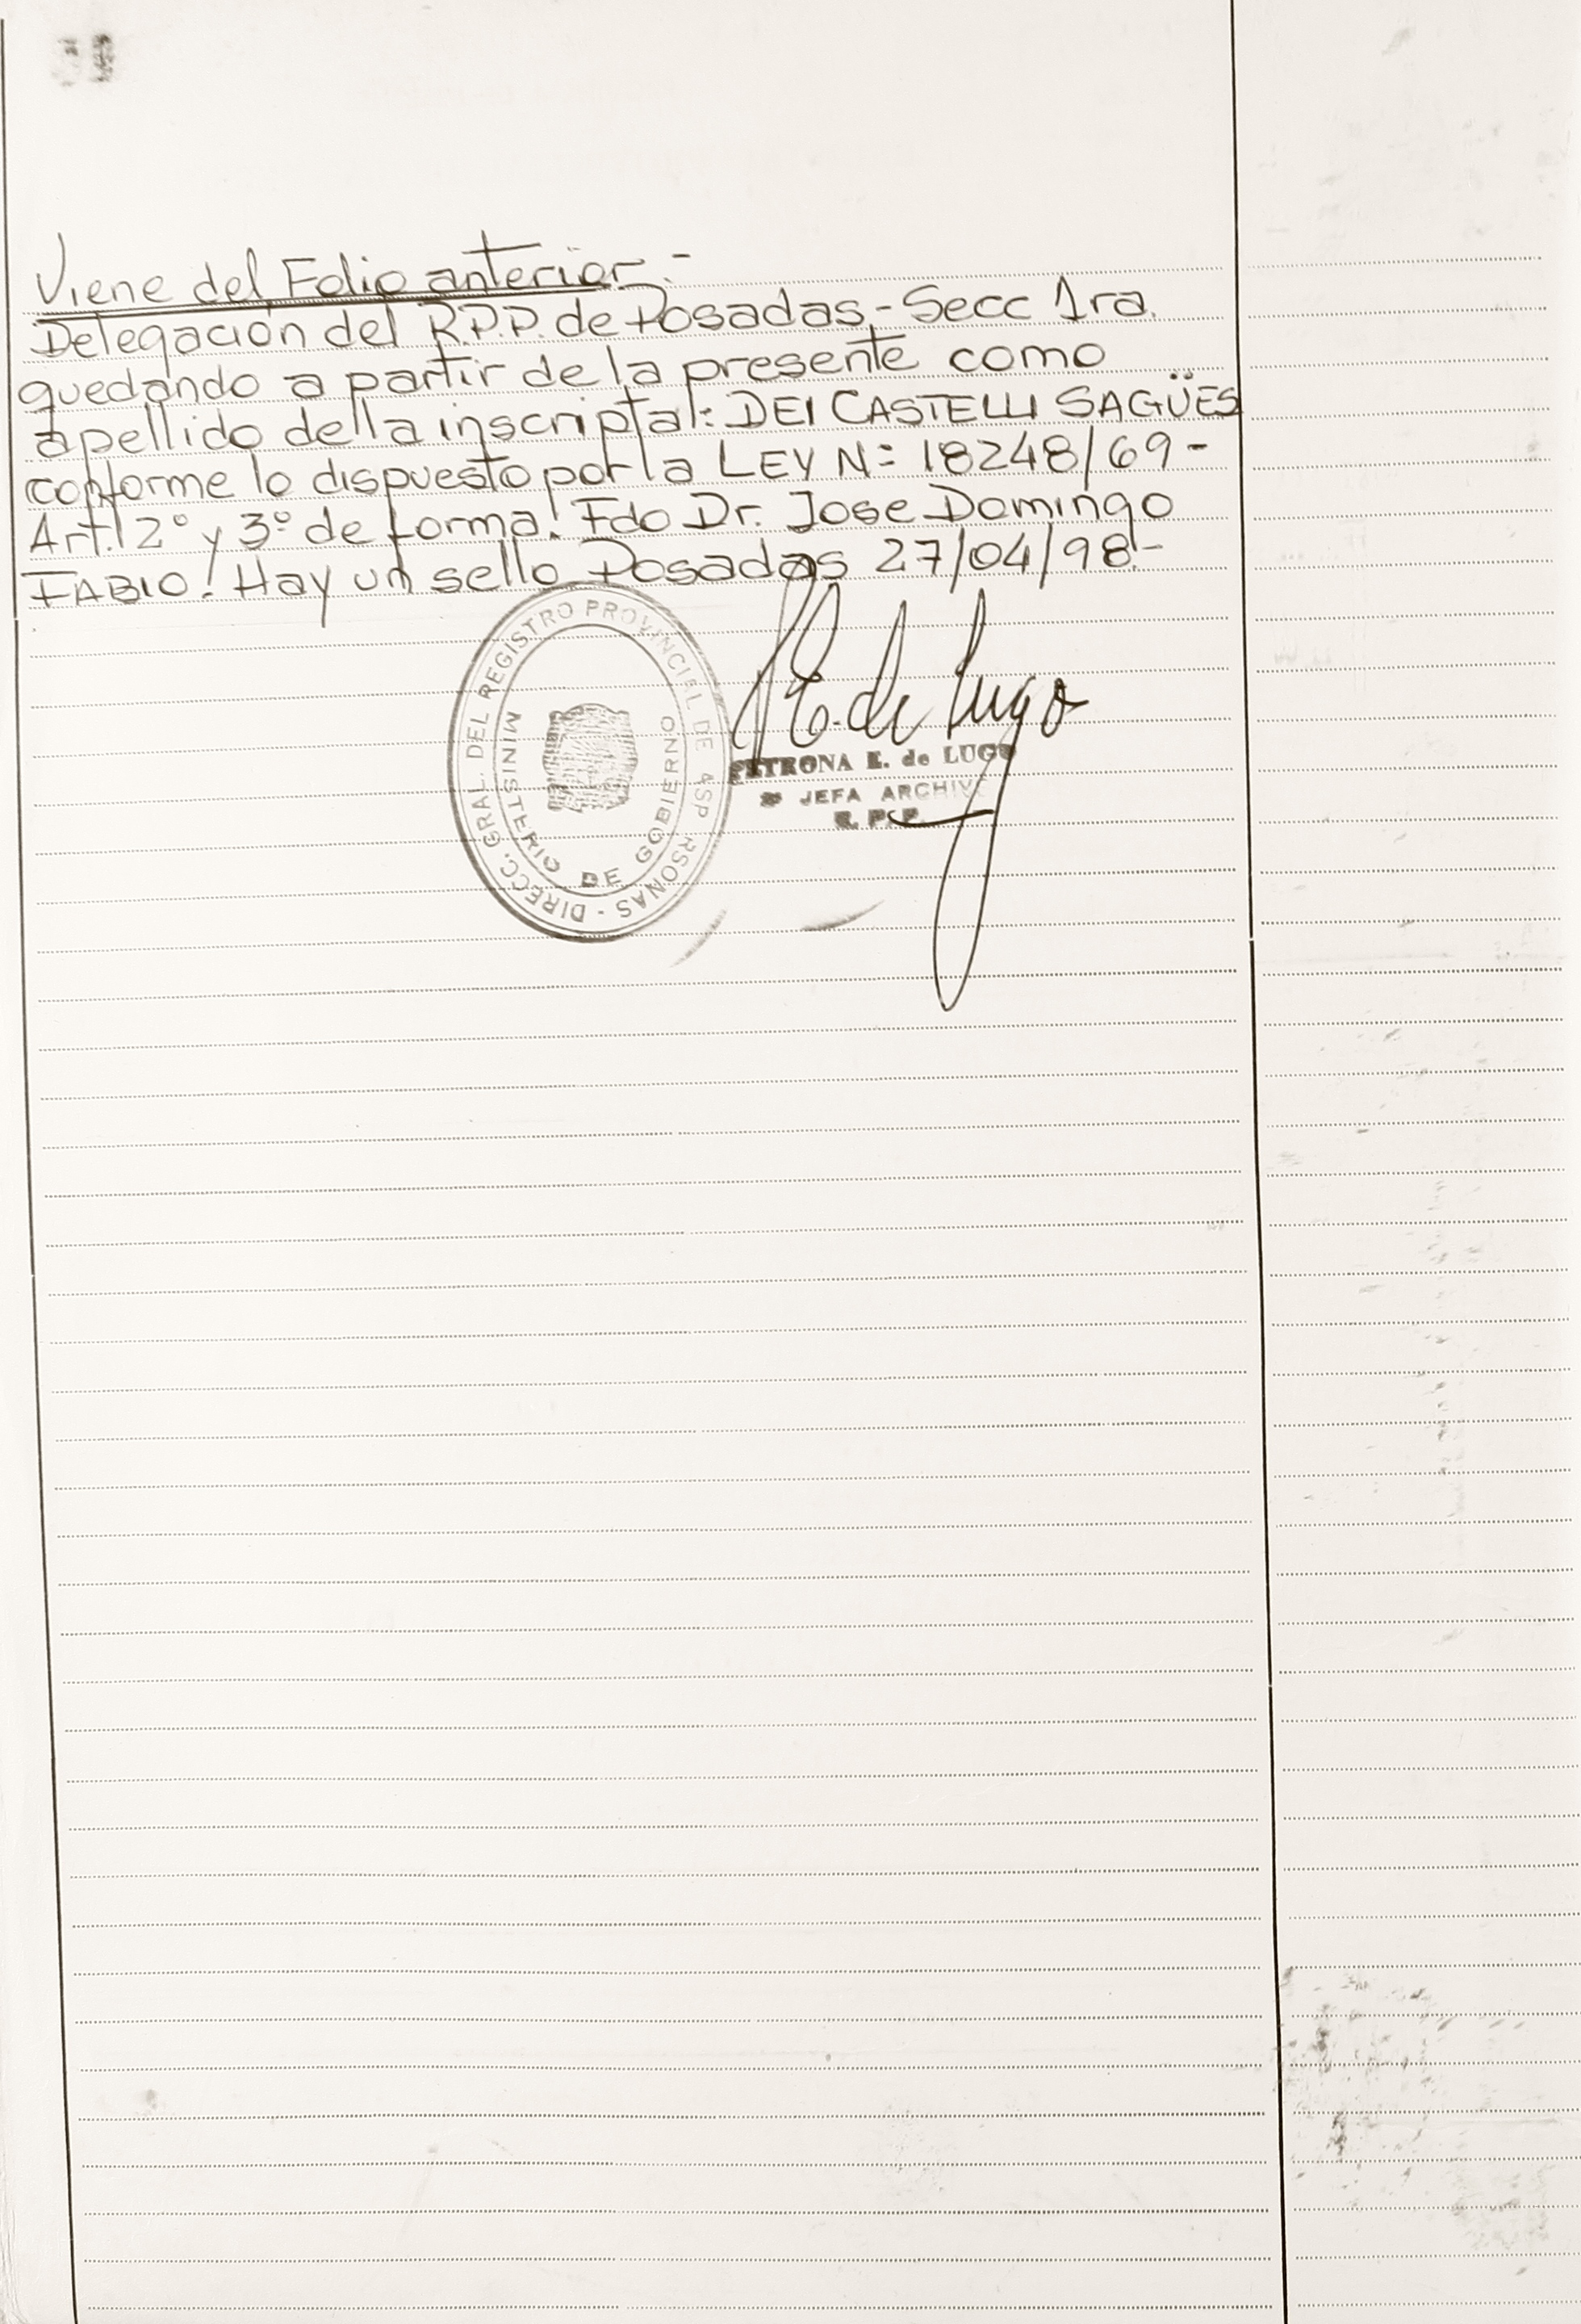 Viene del Folio anterior.-
Delegación del R.P.P. de Posadas,- Secc 1ra.
quedando a partir de la presente como
apellido de la inscripta: DEI CASTELLI SAGÜES
conforme lo dispuesto por la LEY N= 18248/69-
Art. 2° y 3° de forma. Fdo Dr. Jose Domingo
FABIO. Hay un sello Posadas 27/04/98.-
DIRECC. GRAL. DEL REGISTRO PROVINCIAL DE PERSONAS -
MINISTERIO DE GOBIERNO
P E. de Lugo
PETRONA E. de LUGO
JEFA ARCHIVO
R. P. P.